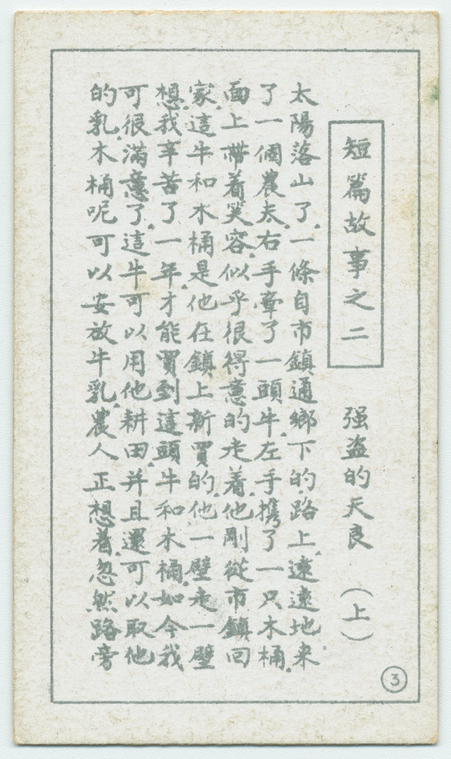 短篇故事之二 强盗的天良 (上)
太陽落山了.一條自市鎮通鄉下的路上.遠遠地来
了一個農夫.右手牽了一頭牛.左手携了一只木桶.
面上帶着笑容.似乎很得意的走着.他剛從市鎮回
家.這牛和木桶是他在鎮上新買的.他一壁走一壁
想.我辛苦了一年.才能買到這頭牛和木桶.如今我
可很滿意了.這牛可以用他耕田.并且還可以取他
的乳.木桶呢可以安放牛乳.農人正想着.忽然路旁
3